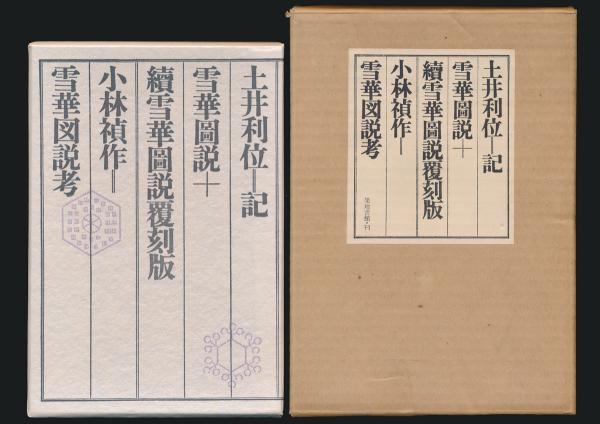 土井利位―記
雪華圖説＋
續雪華圖説覆刻版
小林禎作＝
雪華図説考
土井利位―記
雪華圖説＋
續雪華圖説覆刻版
小林禎作―
雪華図説考
築地書館・刊